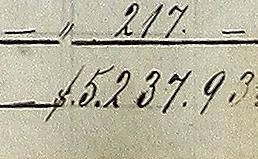 — " 217. —
— $.5.237.93